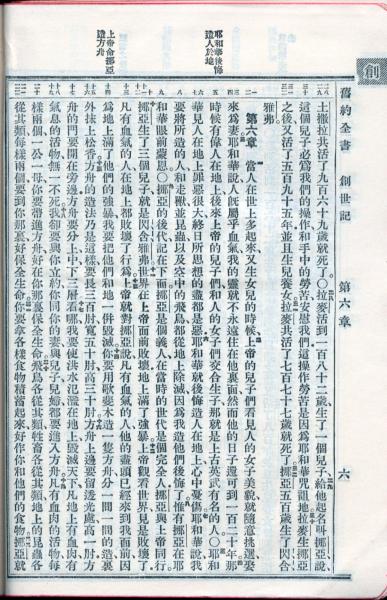 創
舊約全書 創世記 第六章 六
耶和華後悔
造人於地
上帝命挪亞
造方舟
土撒拉共活了九百六十九歲就死了○拉麥活到一百八十二歲生了一個兒子給他起名叫挪亞說
這個兒子必爲我們的操作和手中的勞苦安慰我們這操作勞苦是因爲耶和華咒詛地拉麥生挪亞
之後又活了五百九十五年並且生兒養女拉麥共活了七百七十七歲就死了挪亞五百歲生了閃含
雅弗
第六章 當人在世上多起來又生女兒的時候上帝的兒子們看見人的女子美貌就隨意挑選娶
來爲妻耶和華說人旣屬乎血氣我的靈就不永遠住在他裏面然而他的日子還可到一百二十年那
時候有偉人在地上後來上帝的兒子們和人的女子們交合生子那就是上古英武有名的人○耶和
華見人在地上罪惡很大終日所思想的盡都是惡耶和華就後悔造人在地上心中憂傷耶和華說我
要將所造的人和走獸並昆蟲以及空中的飛鳥都從地上除滅因爲我造他們後悔了惟有挪亞在耶
和華眼前蒙恩○挪亞的後代記在下面挪亞是個義人在當時的世代是個完全人挪亞與上帝同行
挪亞生了三個兒子就是閃含雅弗世界在上帝面前敗壞地上滿了強暴上帝觀看世界見是敗壞了
凡有血氣的人在地上都敗壞了行爲上帝就對挪亞說凡有血氣的人他的盡頭已經來到我面前因
爲地上滿了他們的強暴我要把他們和地一併毀滅你要用歌斐木造一隻方舟分一間一間的造裏
外抹上松香方舟的造法乃是這樣要長三百肘寬五十肘高三十肘方舟上邊要留透光處高一肘方
舟的門要開在旁邊方舟要分上中下三層看哪我要使洪水氾濫在地上毀滅天下凡地上有血肉有
氣息的活物無一不死我卻要與你立約你同你的妻與兒子兒婦都要進入方舟凡有血肉的活物每
樣兩個一公一母你要帶進方舟好在你那裏保全生命飛鳥各從其類牲畜各從其類地上的昆蟲各
從其類每樣兩個要到你那裏好保全生命你要拿各樣食物積蓄起來好作你和他們的食物挪亞就